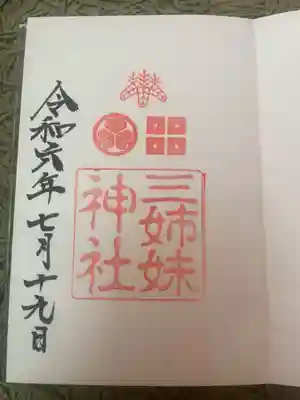 三姉妹
神社
令和六年七月十九日